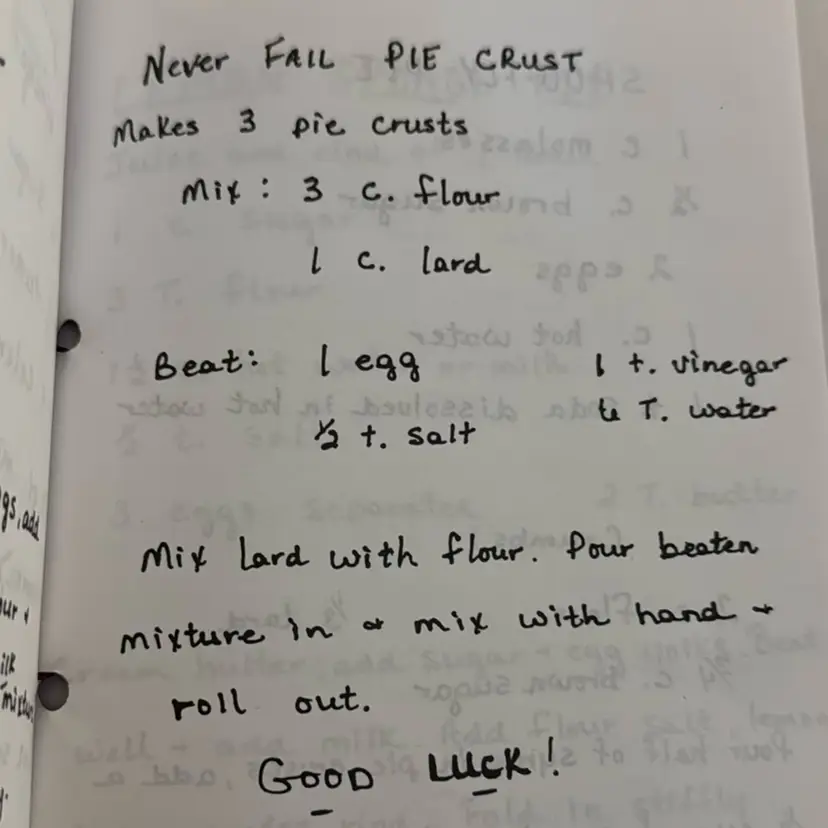 Never FAIL PIE CRUST
Makes 3 pie crusts
Mix: 3 c. flour
1 c. lard
Beat: 1 egg 1 t. vinegar
½ t. salt T. water
Mix lard with flour. Pour beaten
mixture in + mix with hand +
roll out.
GOOD LUCK!
gs, add
our +
ilk
mixtur